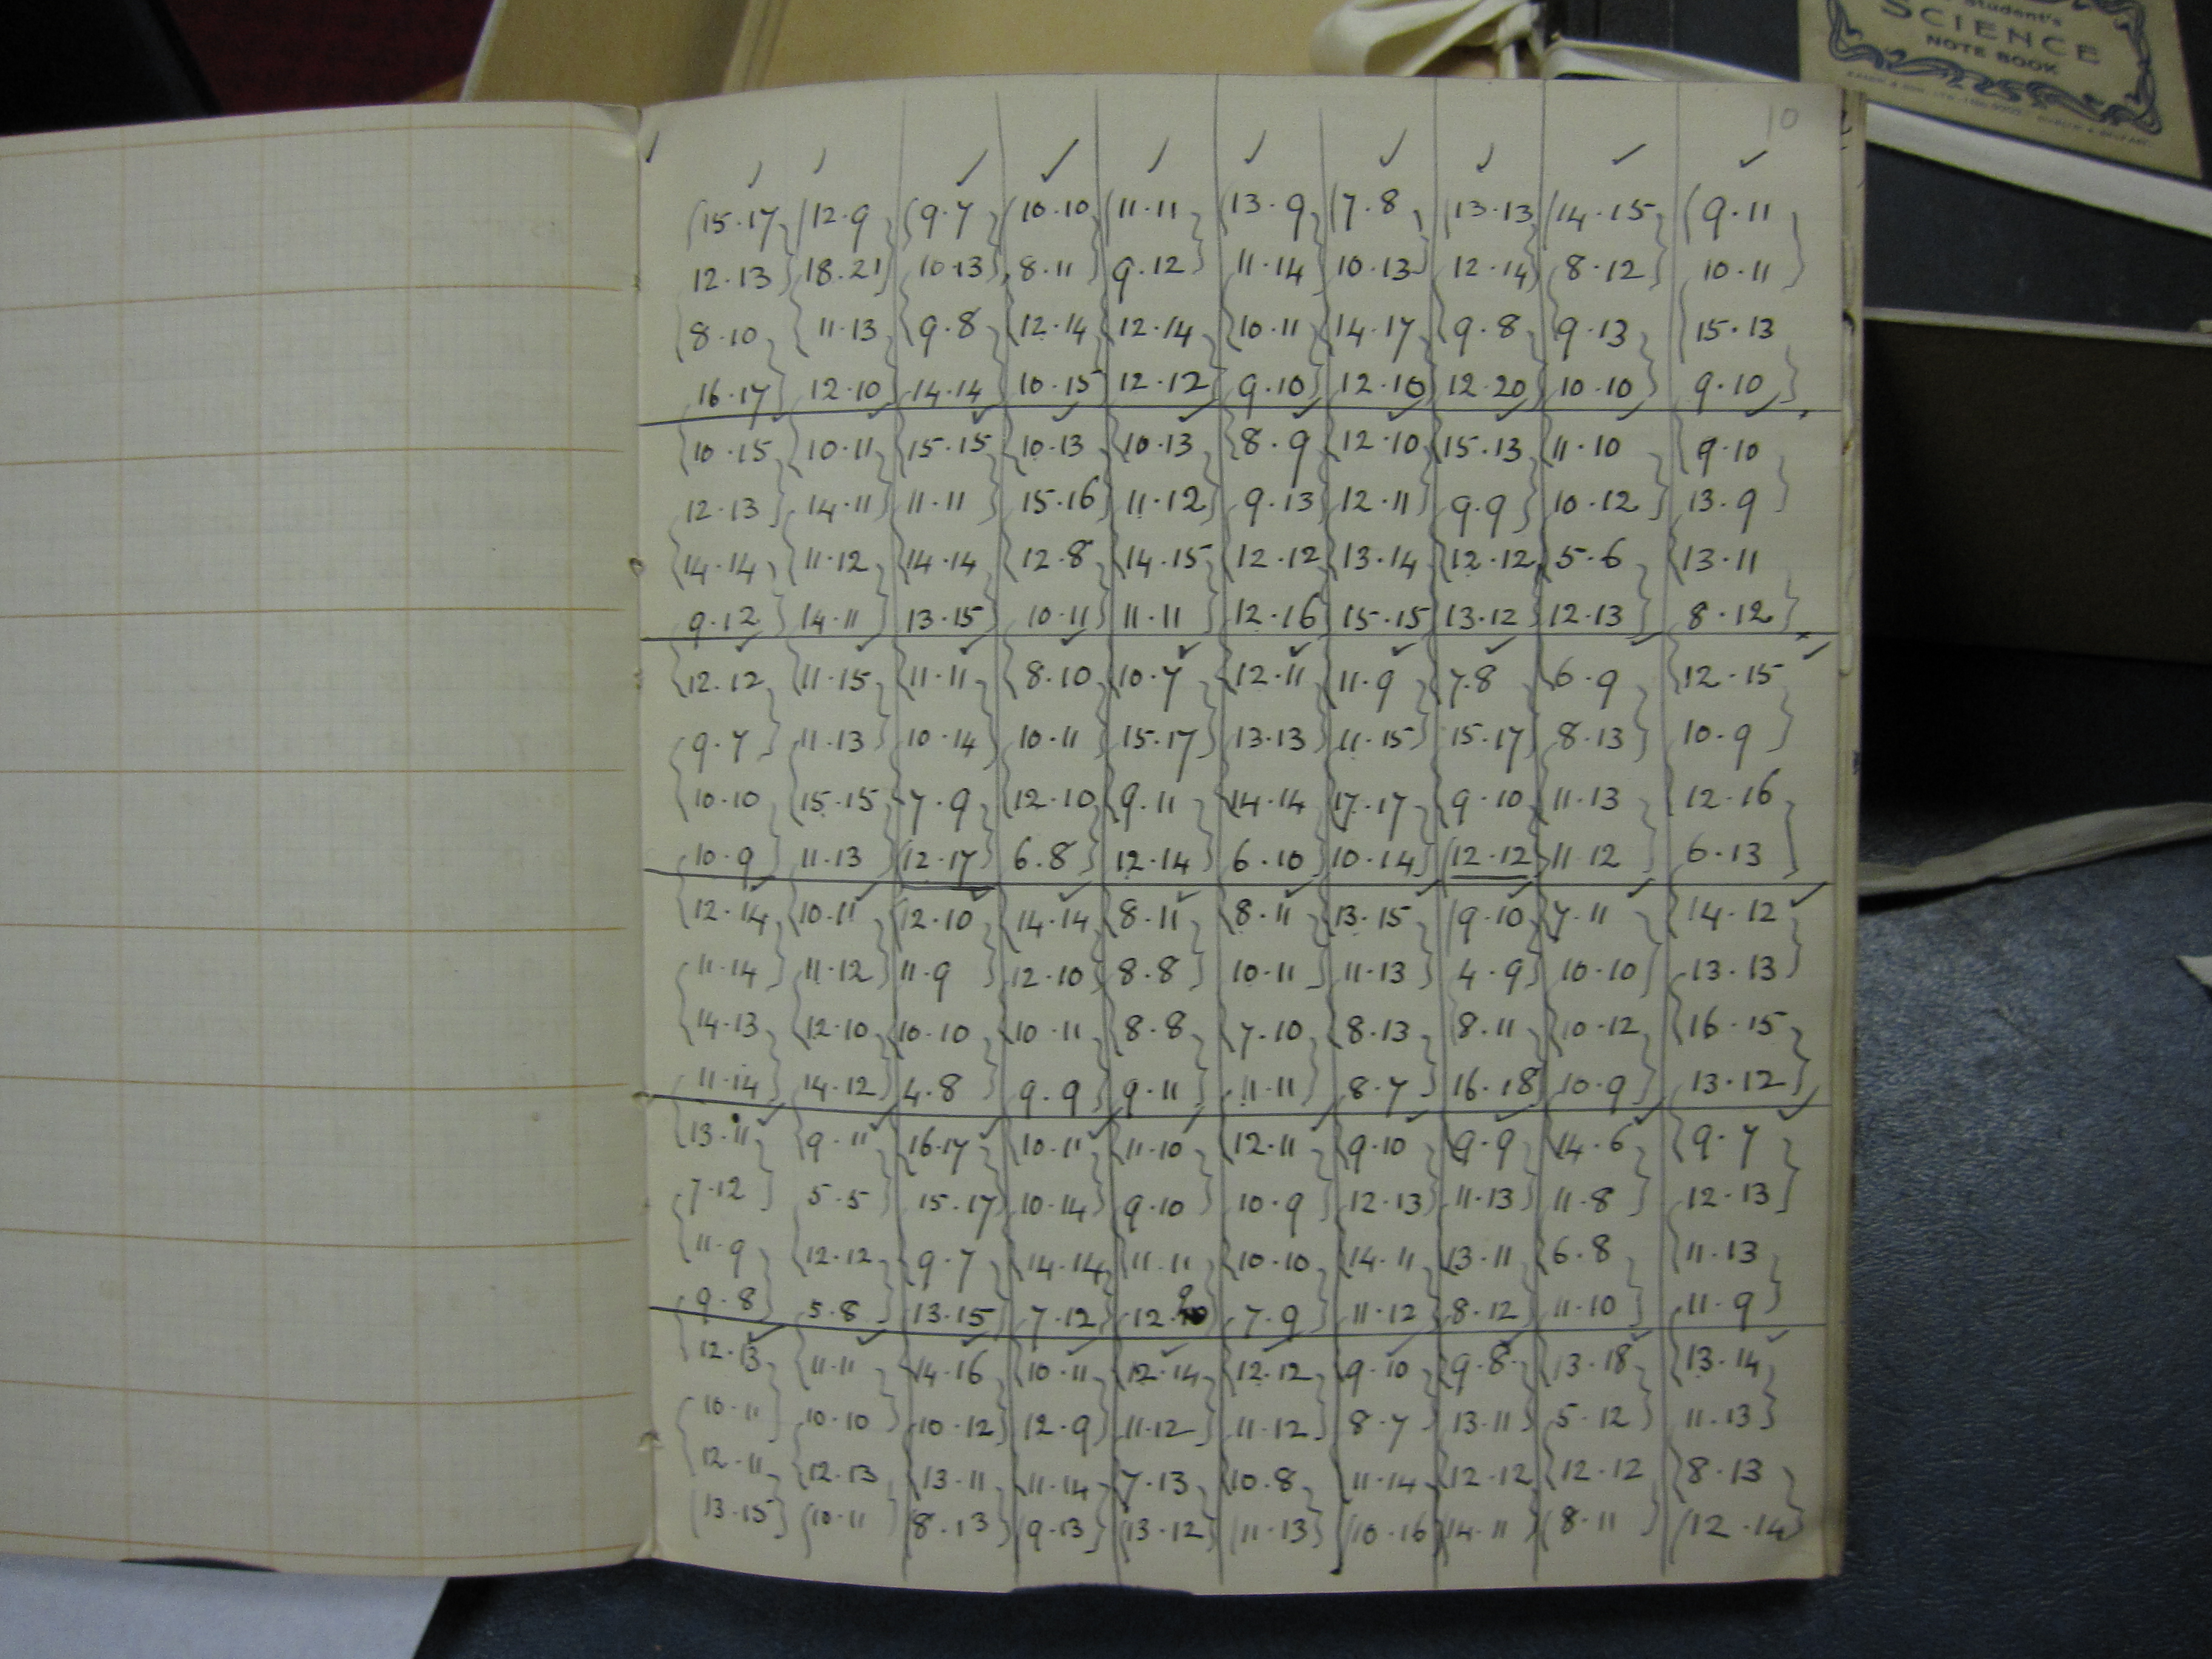 Student's
SCIENCE
NOTE BOOK
10
15.17 12.9 9.7 10.10 11.11 13.9 7.8 13.13 14.15 9.11
12.13 18.21 10.13 8.11 9.12 11.14 10.13 12.14 8.12 10.11
8.10 11.13 9.8 12.14 12.14 10.11 14.17 9.8 9.13 15.13
16.17 12.10 14.14 10.15 12.12 9.10 12.10 12.20 10.10 9.10
10.15 10.11 15.15 10.13 10.13 8.9 12.10 15.13 11.10 9.10
12.13 14.11 11.11 15.16 11.12 9.13 12.11 9.9 10.12 13.9
14.14 11.12 14.14 12.8 14.15 12.12 13.14 12.12 5.6 13.11
9.12 14.11 13.15 10.11 11.11 12.16 15.15 13.12 12.13 8.12
12.12 11.15 11.11 8.10 10.7 12.11 11.9 7.8 6.9 12.15
9.7 11.13 10.14 10.11 15.17 13.13 11.15 15.17 8.13 10.9
10.10 15.15 7.9 12.10 9.11 14.14 17.17 9.10 11.13 12.16
10.9 11.13 12.17 6.8 12.14 6.10 10.14 12.12 11.12 6.13
12.14 10.11 12.10 14.14 8.11 8.11 13.15 9.10 7.11 14.12
11.14 11.12 11.9 12.10 8.8 10.11 11.13 4.9 10.10 13.13
14.13 12.10 10.10 10.11 8.8 7.10 8.13 8.11 10.12 16.15
11.14 14.12 4.8 9.9 9.11 11.11 8.7 16.18 10.9 13.12
13.11 9.11 16.17 10.11 11.10 12.11 9.10 9.9 14.6 9.7
7.12 5.5 15.17 10.14 9.10 10.9 12.13 11.13 11.8 12.13
11.9 12.12 9.7 14.14 11.11 10.10 14.11 13.11 6.8 11.13
9.8 5.8 13.15 7.12 12.9 7.9 11.12 8.12 11.10 11.9
12.13 11.11 14.16 10.11 12.14 12.12 9.10 9.8 13.18 13.14
10.11 10.10 10.12 12.9 11.12 11.12 8.7 13.11 5.12 11.13
12.11 12.13 13.11 11.14 7.13 10.8 11.14 12.12 12.12 8.13
13.15 10.11 8.13 9.13 13.12 11.13 10.16 14.11 8.11 12.14